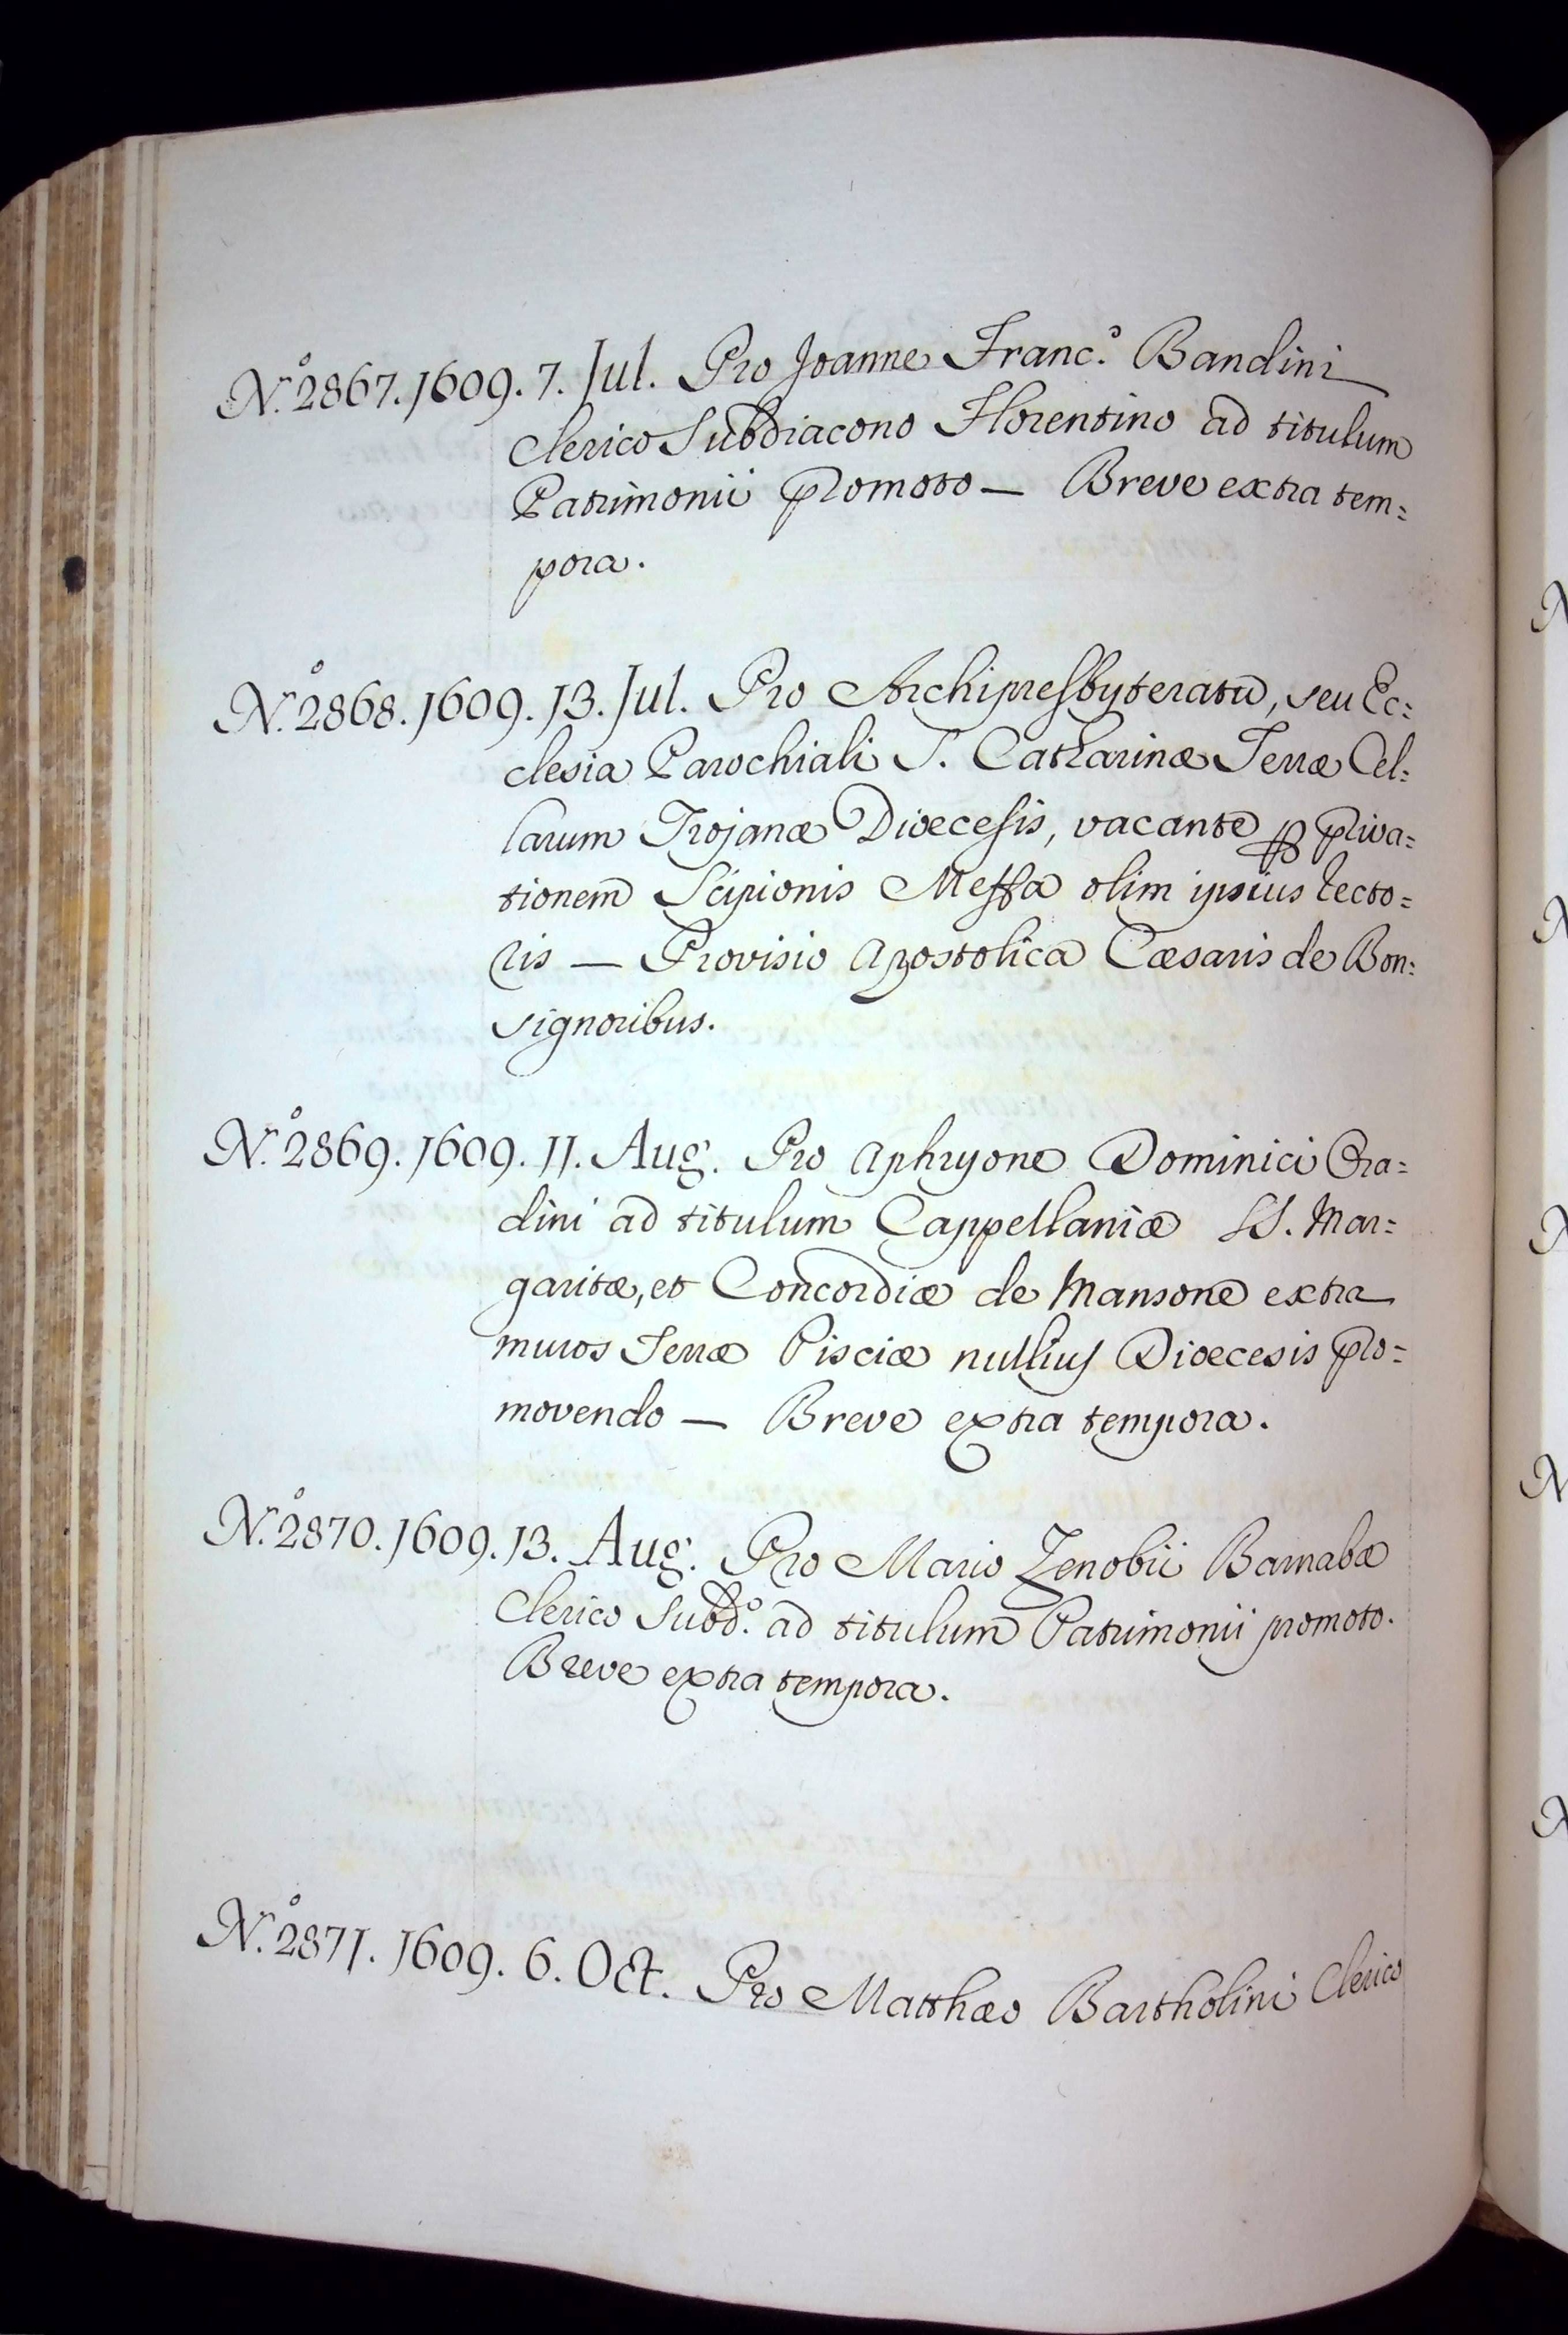 N.º 2867. 1609. 7. Jul. Pro Joanne Franc.º Bandini
Clerico Subdiacono Florentino ad titulum
Patrimonii promoto — Breve extra tem=
pora.
N.º 2868. 1609. 13. Jul. Pro Archipresbyteratu, seu Ec=
clesia Parochiali S. Catharinæ Terræ Cel=
larum Trojanæ Diœcesis, vacante ꝑ priva=
tionem Scipionis Messa olim ipsius Recto=
ris — Provisio Apostolica Cæsaris de Bon=
signoribus.
N.º 2869. 1609. 11. Aug. Pro Aphryone Dominici Ora=
dini ad titulum Cappellaniæ SS. Mar=
garitæ, et Concordiæ de Mansone extra
muros Terræ Pisciæ nullius Diœcesis pro=
movendo — Breve extra tempora.
N.º 2870. 1609. 13. Aug. Pro Mario Zenobii Barnabæ
Clerico Subd.º ad titulum Patrimonii promoto.
Breve extra tempora.
N.º 2871. 1609. 6. Oct. Pro Matthæo Bartholini Clerico